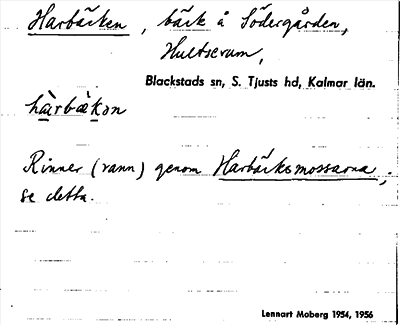 Harbäcken, bäck å Södergården,
Hultserum,
Blackstads sn, S. Tjusts hd, Kalmar län.
hàrbäkən
Rinner (rann) genom Harbäcksmossarna,
se detta.
Lennart Moberg 1954, 1956